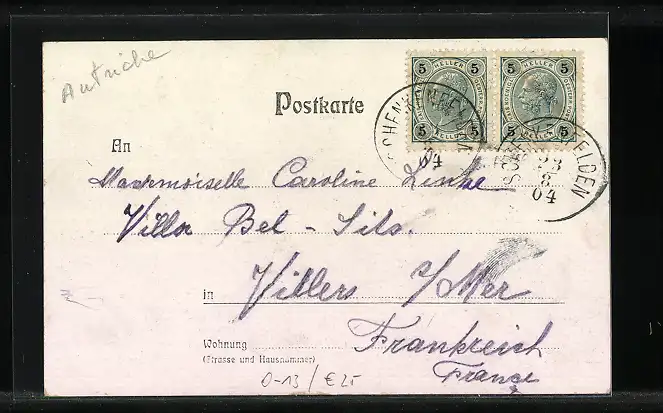 Autriche
5 HELLER 5
5 HELLER 5
5 HELLER 5
5 HELLER 5
Postkarte
04
23
8
04
An
Mademoiselle Caroline Linke
Villa Bel-Sils.
in Villers s/Mer
Wohnung
(Strasse und Hausnummer)
Frankreich
France
0-13/€25